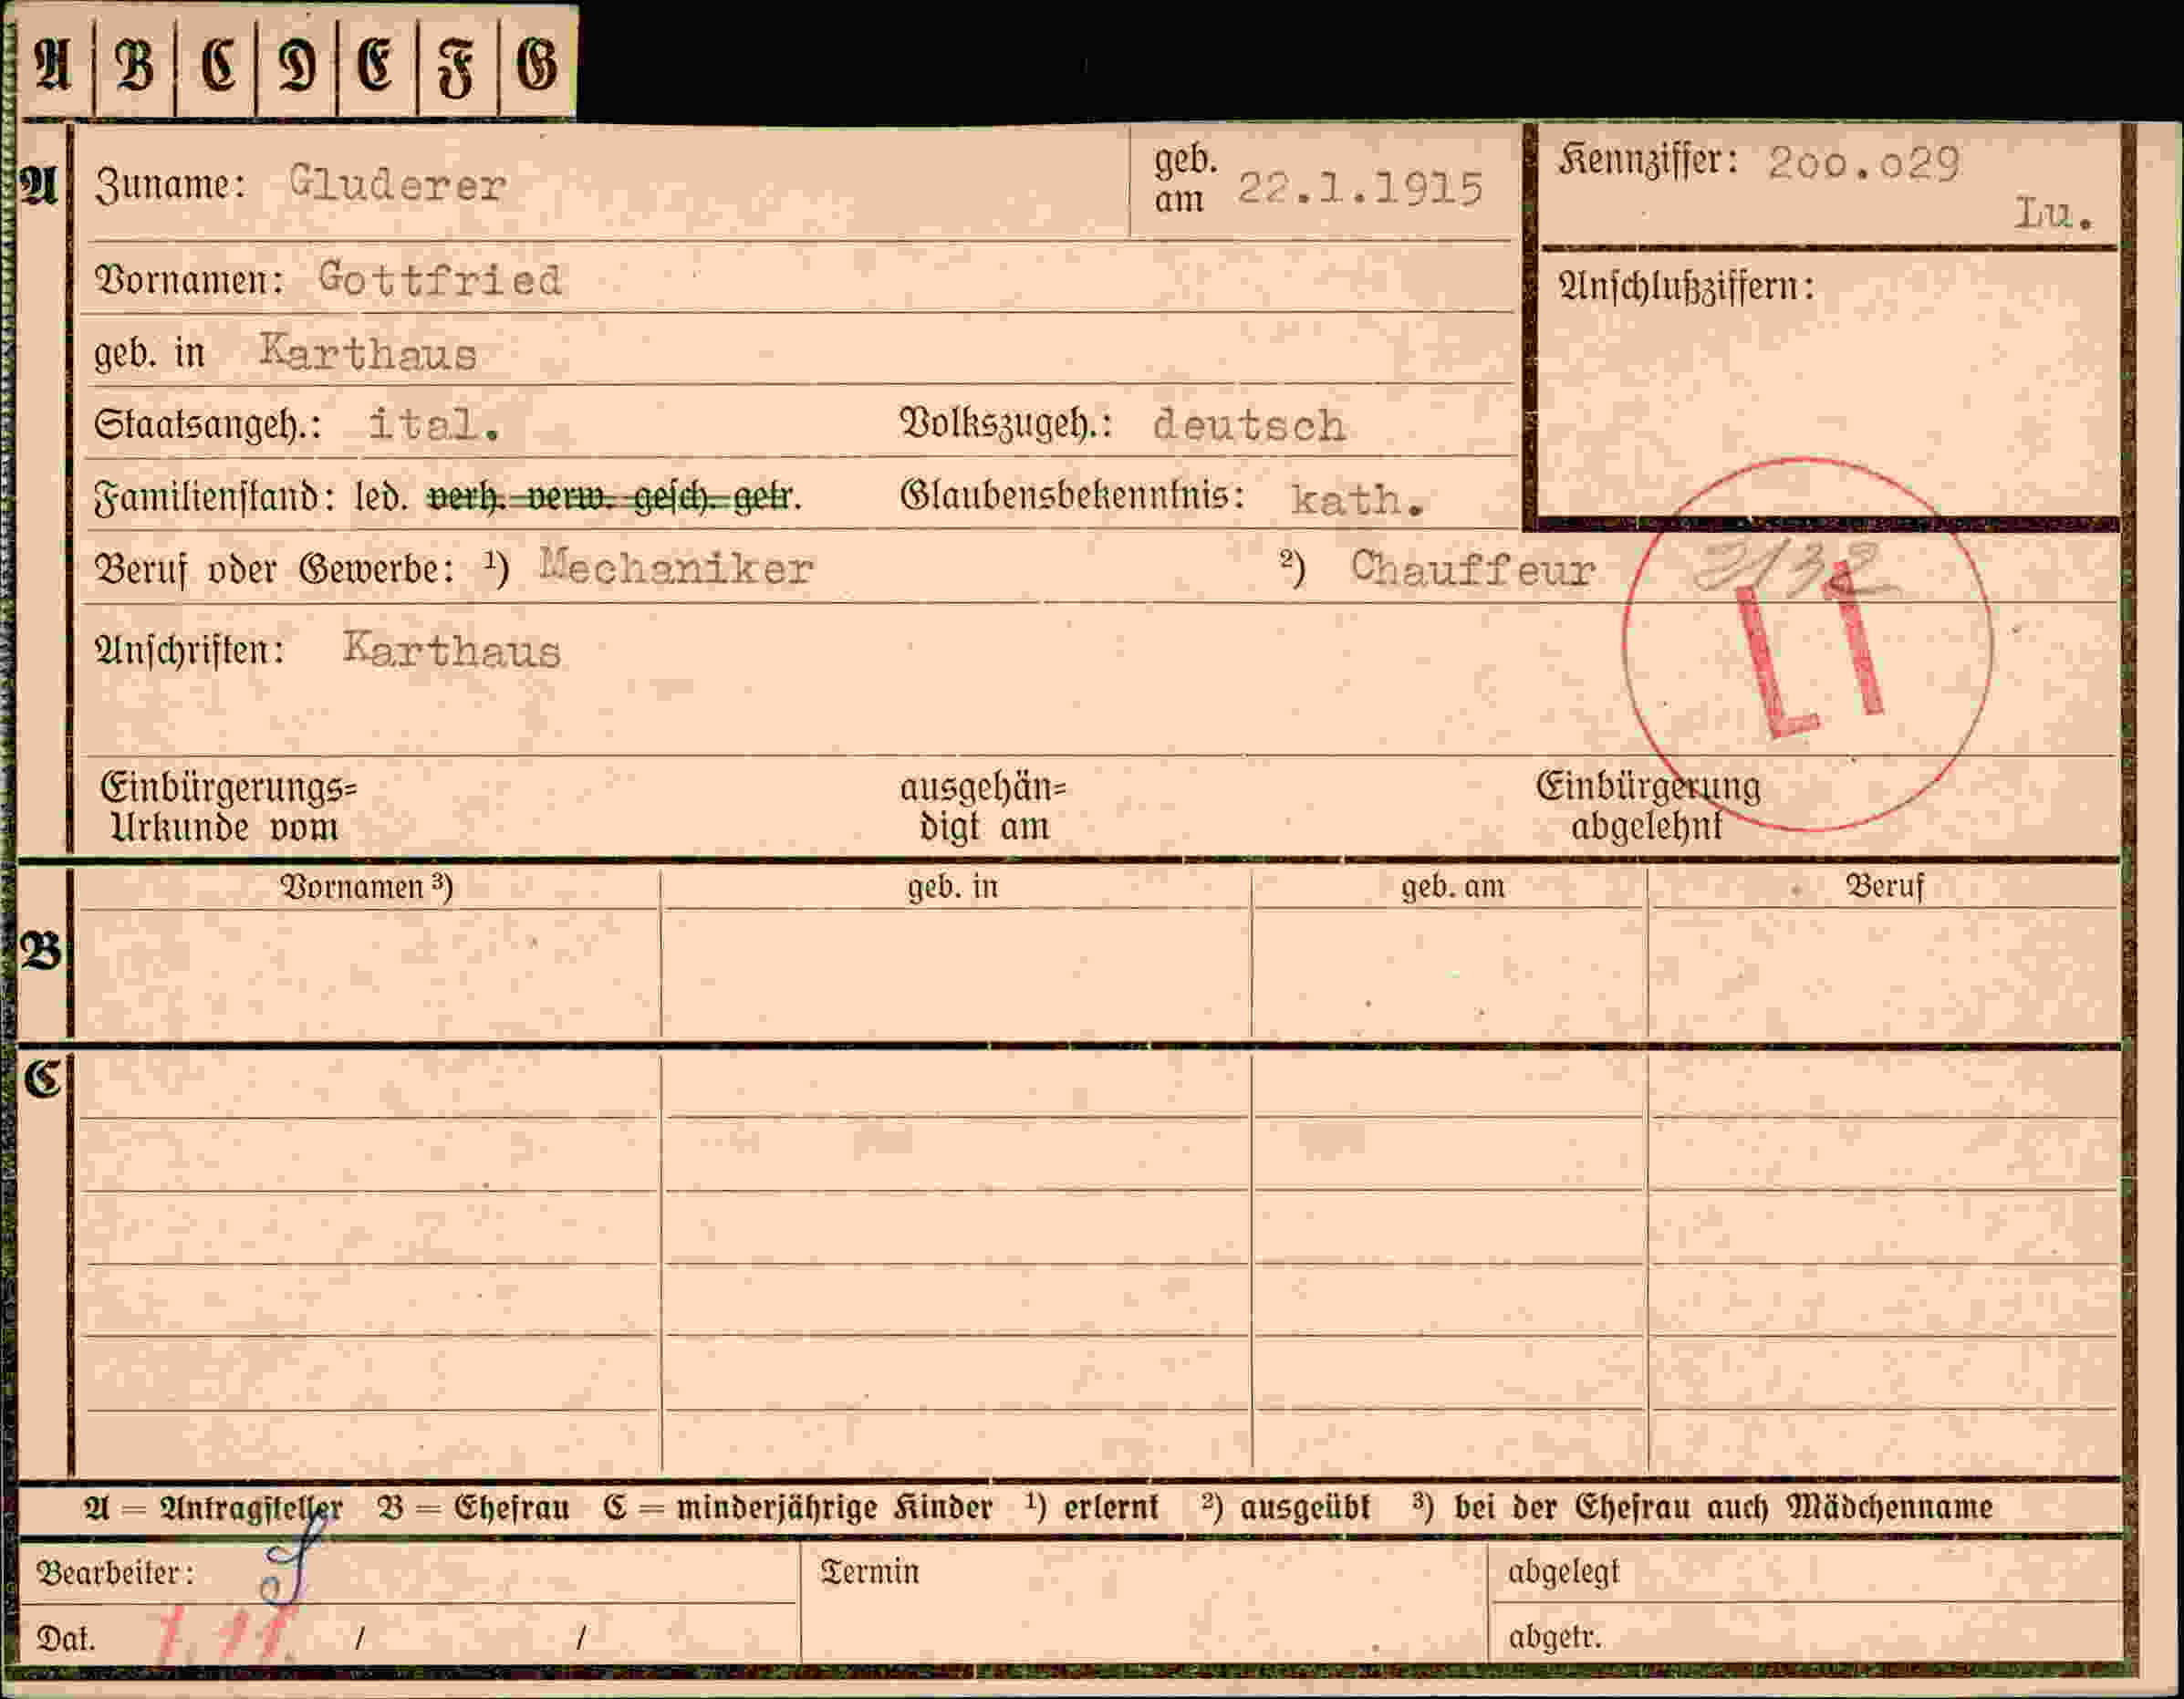 A B C D E F G
A Zuname: Gluderer geb. am 22.1.1915 Kennziffer: 200.029
Lu.
Vornamen: Gottfried Anschlußziffern:
geb. in Karthaus
Staatsangeh.: ital. Volkszugeh.: deutsch
Familienstand: led. verh. verw. gesch. getr. Glaubensbekenntnis: kath.
Beruf oder Gewerbe: ¹) Mechaniker ²) Chauffeur
Anschriften: Karthaus
Einbürgerungs= ausgehän= Einbürgerung
Urkunde vom digt am abgelehnt
Vornamen ³) geb. in geb. am Beruf
B
C
A = Antragsteller B = Ehefrau C = minderjährige Kinder ¹) erlernt ²) ausgeübt ³) bei der Ehefrau auch Mädchenname
Bearbeiter: Termin abgelegt
Dat. / / abgetr.